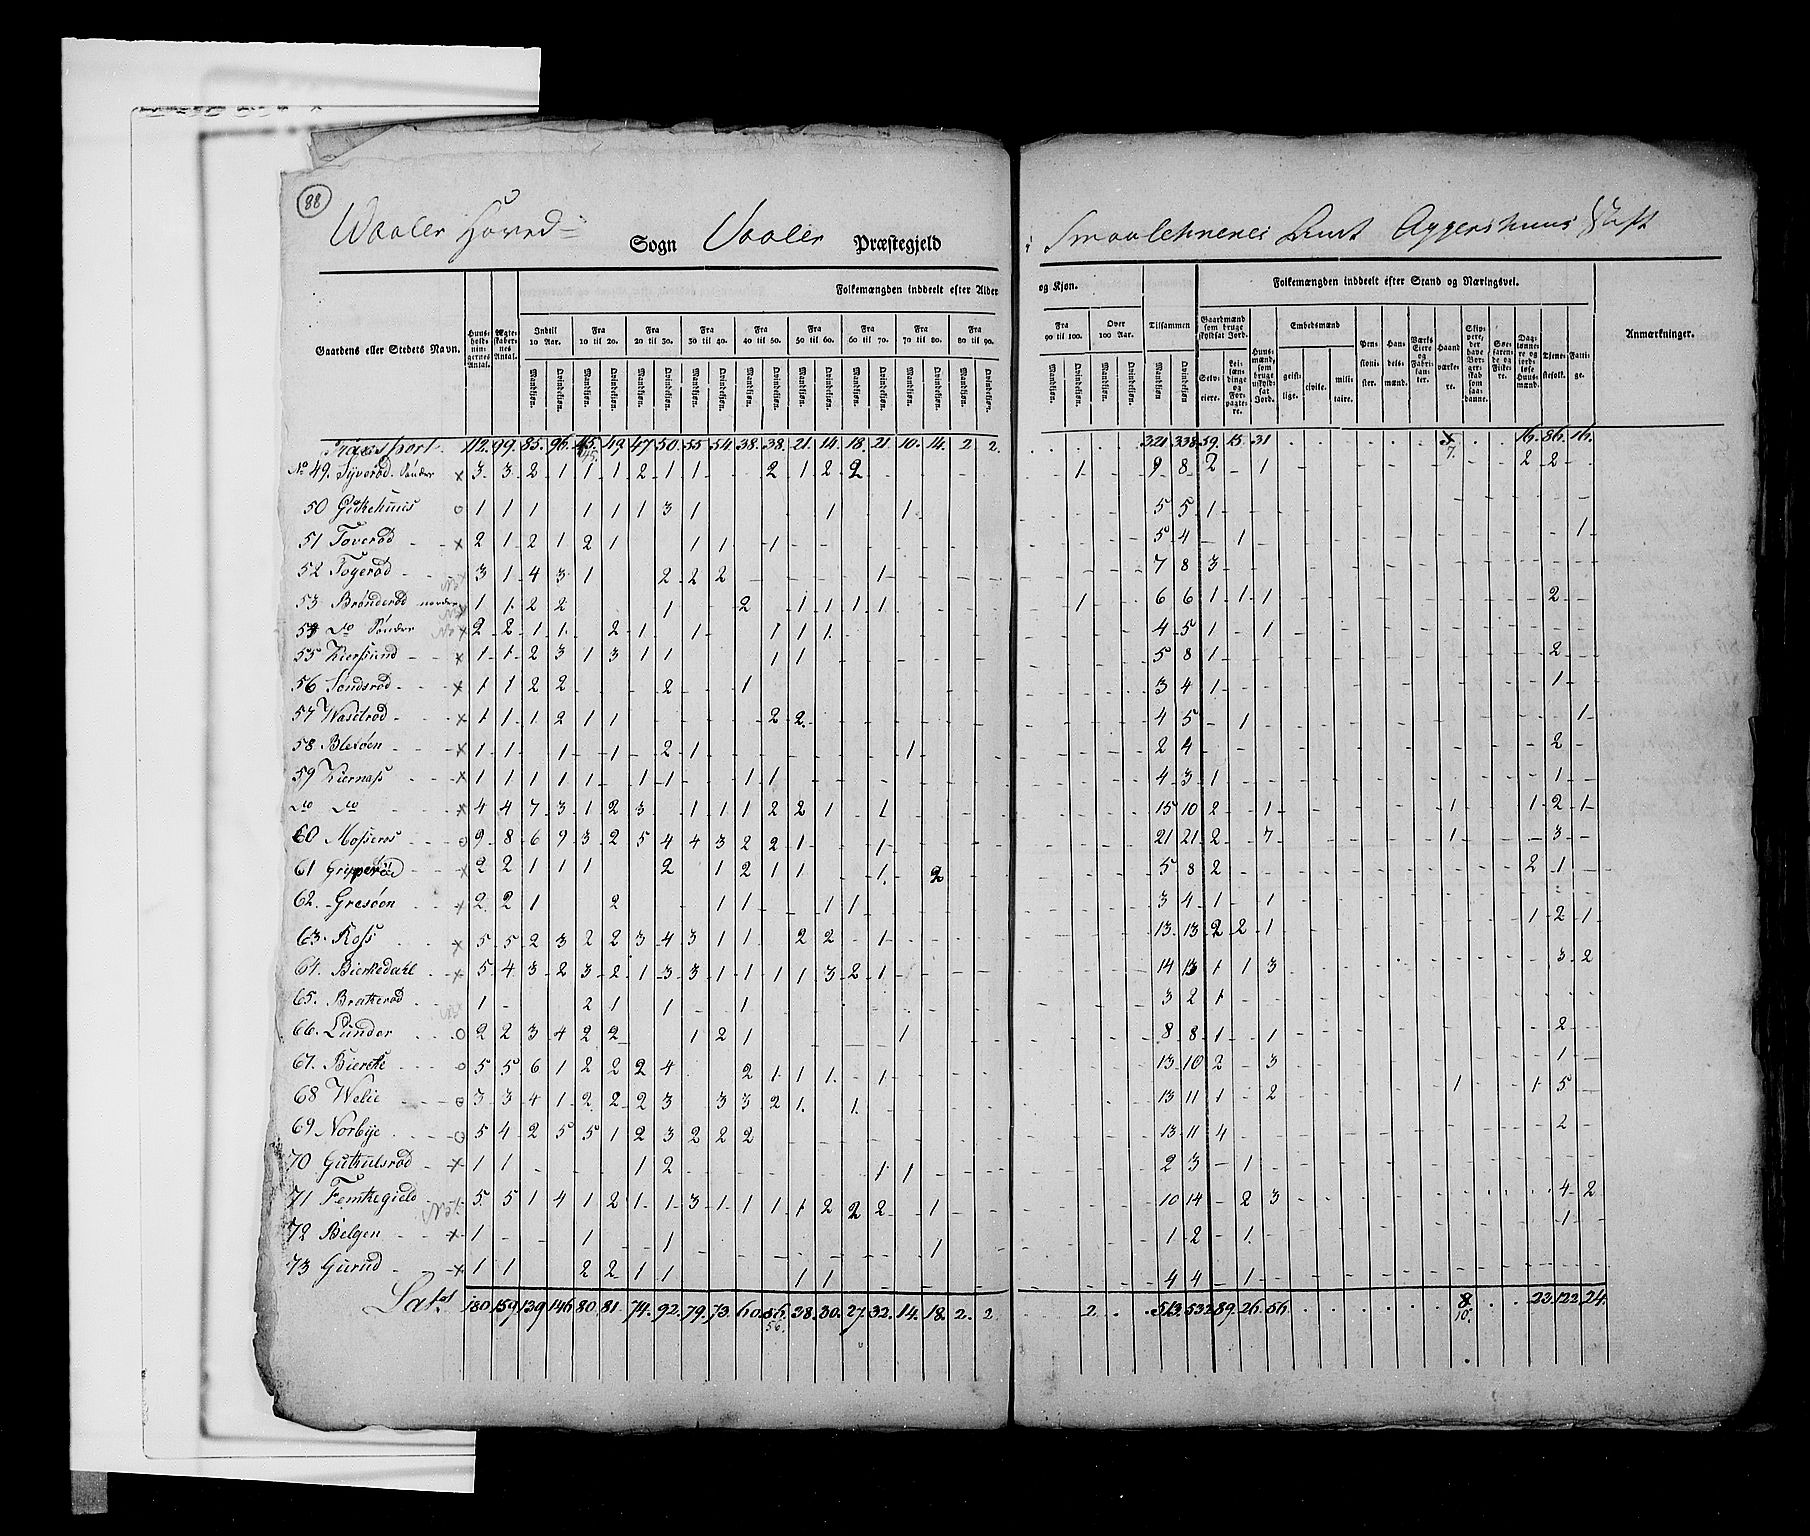 88
Waaler Hoved= Sogn Vaaler Præstegjeld i Smaalehnenes Amt Aggershuus Stift
Gaardens eller Stedets Navn.
Huusholdningernes Antal.
Ægteskabernes Antal.
Folkemængden inddeelt efter Alder og Kjøn.
Indtil 10 Aar.
Fra 10 til 20.
Fra 20 til 30.
Fra 30 til 40.
Fra 40 til 50.
Fra 50 til 60.
Fra 60 til 70.
Fra 70 til 80.
Fra 80 til 90.
Fra 90 til 100.
Over 100 Aar.
Tilsammen
Mandkjøn. Qvindekjøn.
Folkemængden inddeelt efter Stand og Næringsvei.
Gaardmænd som bruge skyldsat Jord.
Selveiere.
Leilændinge og Forpagtere.
Huusmænd, som bruge uskyldsat Jord.
Embedsmænd
geistlige. civile. militaire.
Pensionister.
Handelsmænd.
Værks Eiere og Fabrikanter.
Haandværkere.
Skippere, der have Borgerskab som saadanne.
Søefarende og Fiskere.
Daglønnere og jordløse Huusmænd.
Tjenestefolk.
Fattige.
Anmærkninger.
Transport. 112. 99. 85. 96. 45. 49. 47. 50. 55. 54. 38. 38. 21. 14. 18. 21. 10. 14. 2. 2. 321. 338. 59. 15. 31 7. 16. 86. 16.
No 49. Syverød Søndre x 3 3 2 1 1 1 2 1 1 2 1 2 2 1 9 8 2 1 2 2
50 Gitkehuus o 1 1 1 1 1 1 3 1 1 1 5 5 1
51 Toverød x 2 1 2 1 2 1 1 1 1 5 4 1 1
52 Togerød 3 1 4 3 1 2 2 2 1 7 8 3
53 Brønderød nordre 1 1 2 2 1 2 1 1 1 1 1 6 6 1 1 1 2
54 do Søndre x 2 2 1 1 2 1 1 1 1 1 4 5 1 1
55 Kiersund x 1 1 2 3 1 3 1 1 1 1 5 8 1 2
56 Sondsrød x 1 1 2 2 2 1 3 4 1 1
57 Wastrød x 1 1 1 2 1 1 2 2 4 5 1 1
58 Bletøen x 1 1 1 1 2 1 1 2 4 2
59 Kiernass x 1 1 1 1 1 1 1 1 1 4 3 1 1
do do x 4 4 7 3 1 2 3 1 1 1 2 2 1 1 15 10 2 1 1 1 2 1
60 Mosseros o 9 8 6 9 3 2 5 4 4 3 2 2 1 1 21 21 2 7 1 3
61 Gripperød x 2 2 1 1 1 2 1 2 1 1 1 2 5 8 2 2 1
62. Gresøen x 2 2 1 2 1 1 1 1 3 4 1 1
63. Ross x 5 5 2 3 2 2 3 4 3 1 1 2 2 1 13 13 2 2 1 1 2 1
64. Bierkedahl x 5 4 3 2 3 2 1 3 3 1 1 1 1 3 2 1 14 13 1 1 3 3 2
65. Brakerød 1 2 1 1 1 3 2 1
66. Lunder o 2 2 3 4 2 2 1 2 1 1 8 8 1 1 2
67. Biercke o 5 5 6 1 2 2 2 4 2 1 1 1 1 13 10 2 3 1
68 Welie o 3 3 4 1 2 2 2 3 3 3 2 1 1 13 11 1 2 1 1 5
69 Norbye o 5 4 2 5 5 1 2 3 2 2 2 13 11 4 2
70 Guthulsrød x 1 1 1 2 1 1 2 3 1
71 Femkegield 5 5 1 4 1 2 1 1 3 1 1 1 1 2 2 2 1 10 14 2 3 4 2
72 Belgen x 1 1 1 1 1 2 1 1
73 Gurud x 1 1 2 2 1 1 1 1 4 4 1
Lats 180. 159 139 146 80. 81. 74. 92. 79. 73. 60. 56. 38. 30. 27. 32. 14. 18. 2. 2 2 513. 532 89. 26. 56. 10. 23. 122. 24.
56.